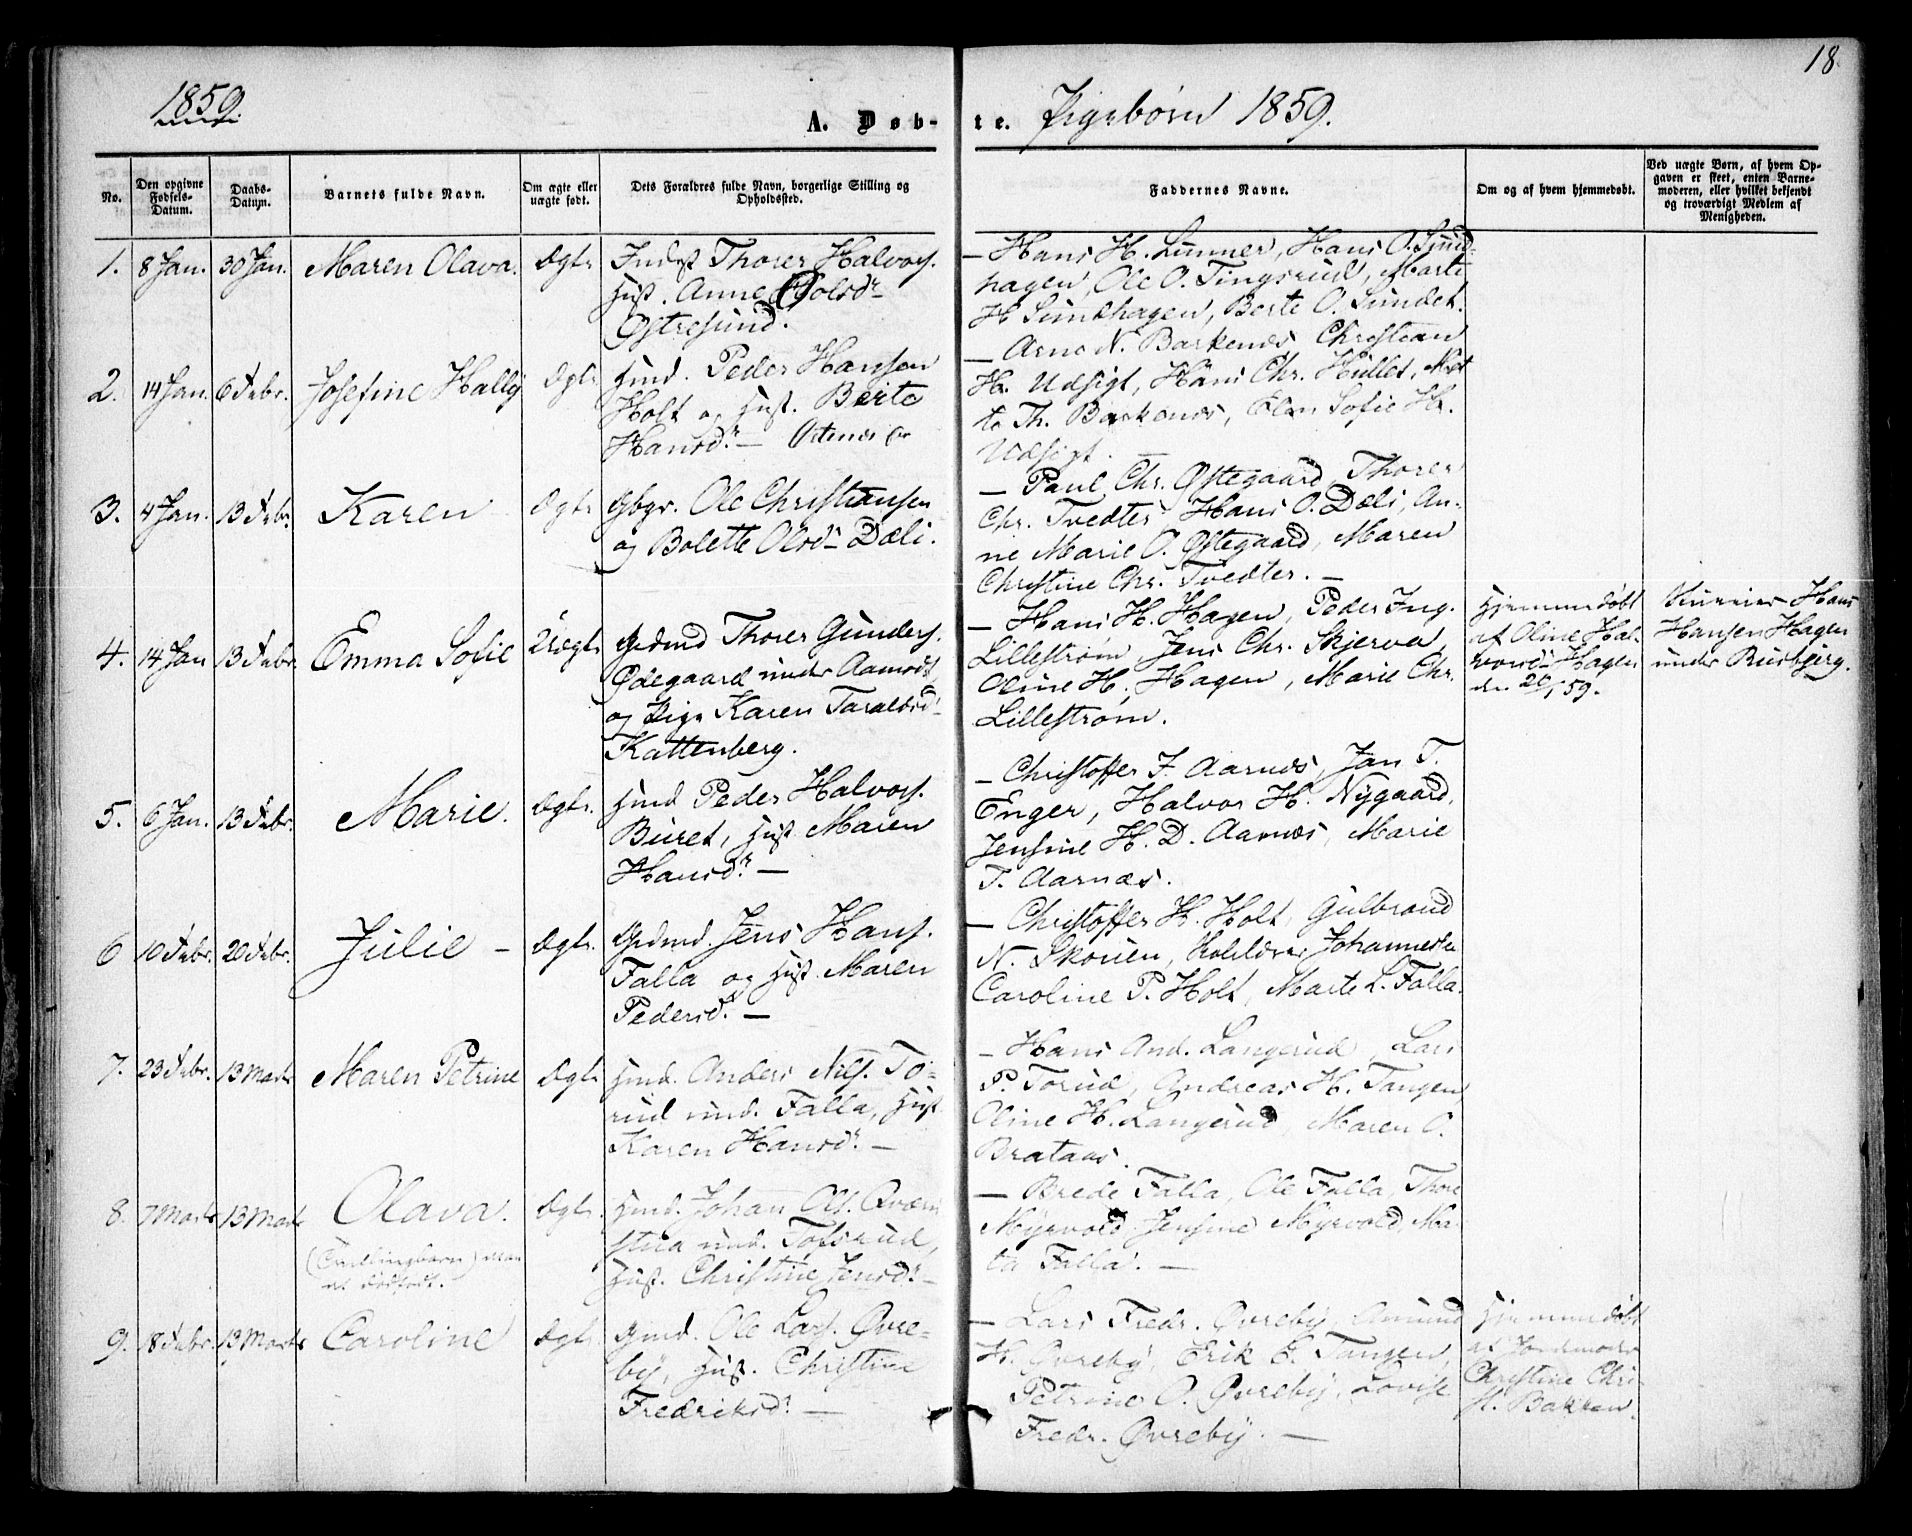 18.
1859.
A. Døbte. Pigebørn 1859.
No.
Den opgivne Fødsels-Datum.
Daabs-Datum.
Barnets fulde Navn.
Om ægte eller uægte født.
Dets Forældres fulde Navn, borgerlige Stilling og Opholdssted.
Faddernes Navne.
Om og af hvem hjemmedøbt.
Ved uægte Børn, af hvem Opgaven er skeet, enten Barnemoderen, eller hvilket bekjendt og troværdigt Medlem af Menigheden.
1. 8 Jan. 30 Jan. Maren Olava. Ægte
Inderst Thorer Halvors.
Hust. Anne Olsdr
Østresund.
- Hans H. Linner, Hans O. Sund-
hagen, Ole O. Tingsrud, Marte
H Sundhagen, Berte O. Sundet.
2. 14 Jan. 6 Febr. Josefine Hally Ægte
Hmd. Peder Hansen
Holt og Hust. Berte
Hansdr. -
- Arne N. Barkenes Christian
H. Udsigt, Hans Chr. Hullet, Mat
te Th. Barkenes, Elen Sofie H.
Udsigt.
3. 4 Jan. 13 Febr. Karen Ægte
Gbgr. Ole Christiansen
og Bolette Olsdr Dæli.
- Paul Chr. Østegaard Thorer
Chr. Tvedter, Hans O. Dæli, An-
ne Marie O. Østegaard, Maren
Christine Chr. Tvedter. -
4. 14 Jan 13 Febr. Emma Sofie Uægte
Grdmd Thorer Gunders.
Ødegaard under Aamodt
og Pige Karen Taraldsd
Kattenberg.
- Hans H. Hagen, Peder Ing.
Lillestrøm, Jens Chr. Skjerva,
Oline H. Hagen, Marie Chr.
Lillestrøm.
Hjemmedøbt
af Oline Hal-
vorsd Hagen
d. 20/1 59.
Hans
Hansen Hagen
under Busbjerg.
5. 6 Jan. 13 Febr. Marie. Ægte.
Hmd Peder Halvors.
Buret, Hust Maren
Hansdr. -
- Christoffer J. Aarnes, Jan T.
Enger, Halvor H. Nygaard,
Jensine H. D. Aarnæs, Marie
T. Aarnæs.
6 10 Febr. 20 Febr. Julie - Ægte.
Grdmd. Jens Hans.
Falla og Hust. Maren
Pedersd. -
- Christoffer H. Holt, Gulbrand
N. Skouen, Johannes
Caroline P. Holt, Marte L. Falla.
7. 23 Febr. 13 Marts Maren Petrine Ægte
Hmd. Anders Nils. To-
rud und. Falla, Hust
Karen Hansdr. -
- Hans And. Langerud, Lars
P. Torud, Andreas H. Tangen,
Oline H. Langerud, Maren O.
Brataas.
8. 7 Marts 13 Marts Olava. Ægte.
(Tvillingbarn)
dødfødt.
Hmd. Johan Ols. Qværn
stua und. Tofsrud,
Hust. Christine Jensdr. -
- Brede Falla, Ole Falla, Thore
Myrvold, Jensine Myrvold, Ma-
ta Falla. -
9. 18 Febr. 13 Marts Caroline Ægte.
Gmd. Ole Lars. Øvre-
by, Hust. Christine
Fredriksd. -
- Lars Fredr. Øvreby, Amund
H. Øvreby, Erik E. Tangen,
Petrine O. Øvreby, Lovise
Fredr. Øvreby. -
Hjemmedøbt
af Jordemoder
Christine Chri-
st. Bakken.